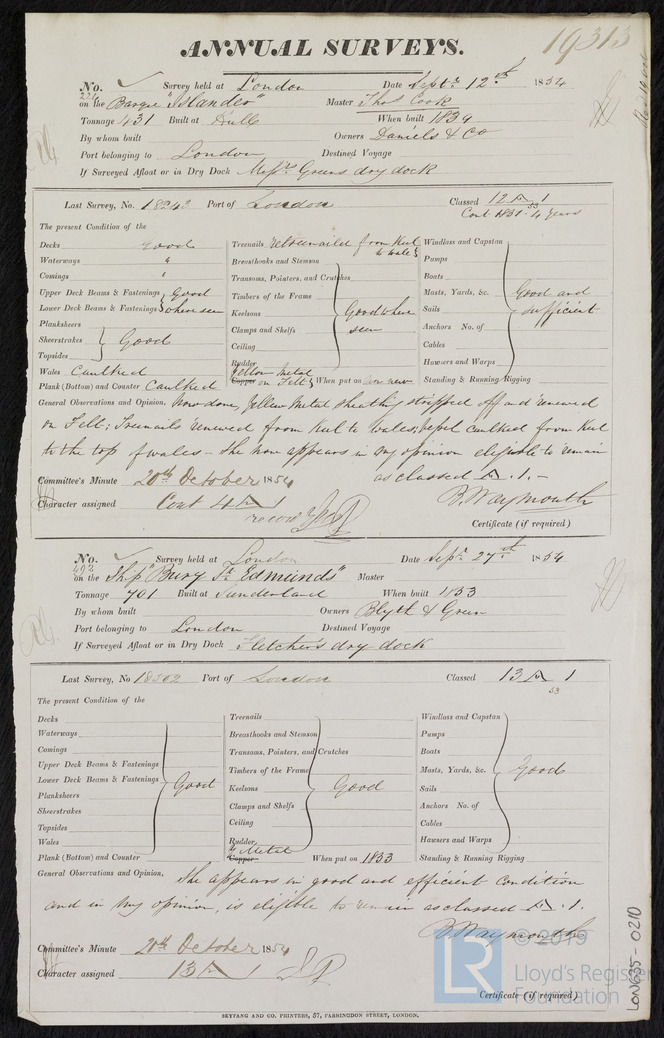 ANNUAL SURVEYS. 19313
No. 224 Survey held at London Date Septr. 12th 1854
on the Barque "Islander" Master Thos Cook
Tonnage 431 Built at Hull When built 1834
By whom built Owners Daniels & Co
Port belonging to London Destined Voyage
If Surveyed Afloat or in Dry Dock Messrs Greens dry dock
Last Survey, No. 18243 Port of London Classed 12 A 1
53
Cont 1851 - 4 Years
The present Condition of the
Decks good
Waterways "
Comings "
Upper Deck Beams & Fastenings Good
Lower Deck Beams & Fastenings where seen
Planksheers
Sheerstrakes Good
Topsides
Wales Caulked
Plank (Bottom) and Counter Caulked
Treenails retreenailed from Keel to wales
Breasthooks and Stemson
Transoms, Pointers, and Crutches
Timbers of the Frame
Keelsons Good where
Clamps and Shelfs seen
Ceiling
Rudder
Yellow Metal
Copper on Felt When put on now new
Windlass and Capstan
Pumps
Boats
Masts, Yards, &c. Good and
Sails sufficient
Anchors No. of
Cables
Hawsers and Warps
Standing & Running Rigging
General Observations and Opinion, Now done, Yellow Metal sheathing stripped off and renewed
on Felt; Treenails renewed from Keel to Wales; vessel caulked from Keel
to the top of wales - She now appears in my opinion eligible to remain
as classed A. 1. -
Committee's Minute 20th October 1854
B. Waymouth
Character assigned Cont 4 A 1
Certificate (if required)
No. 492 Survey held at London Date Sepr. 27th 1854
on the Ship "Bury St. Edmunds" Master
Tonnage 701 Built at Sunderland When built 1853
By whom built Owners Blyth & Green
Port belonging to London Destined Voyage
If Surveyed Afloat or in Dry Dock Fletcher's dry dock
Last Survey, No 18502 Port of London Classed 13 A 1
53
The present Condition of the
Decks
Waterways
Comings
Upper Deck Beams & Fastenings
Lower Deck Beams & Fastenings Good
Planksheers
Sheerstrakes
Topsides
Wales
Plank (Bottom) and Counter
Treenails
Breasthooks and Stemson
Transoms, Pointers, and Crutches
Timbers of the Frame
Keelsons Good
Clamps and Shelfs
Ceiling
Rudder
Y Metal
Copper When put on 1853
Windlass and Capstan
Pumps
Boats
Masts, Yards, &c. Good
Sails
Anchors No. of
Cables
Hawsers and Warps
Standing & Running Rigging
General Observations and Opinion, She appears in good and efficient condition
and in my opinion, is eligible to remain as classed A. 1.
B. Waymouth
Committee's Minute 20th October 1854
Character assigned 13 A 1
Certificate (if required)
SEYFANG AND CO. PRINTERS, 57, FARRINGDON STREET, LONDON.
LON635-0210
© 2019
LR
Lloyd's Register
Foundation